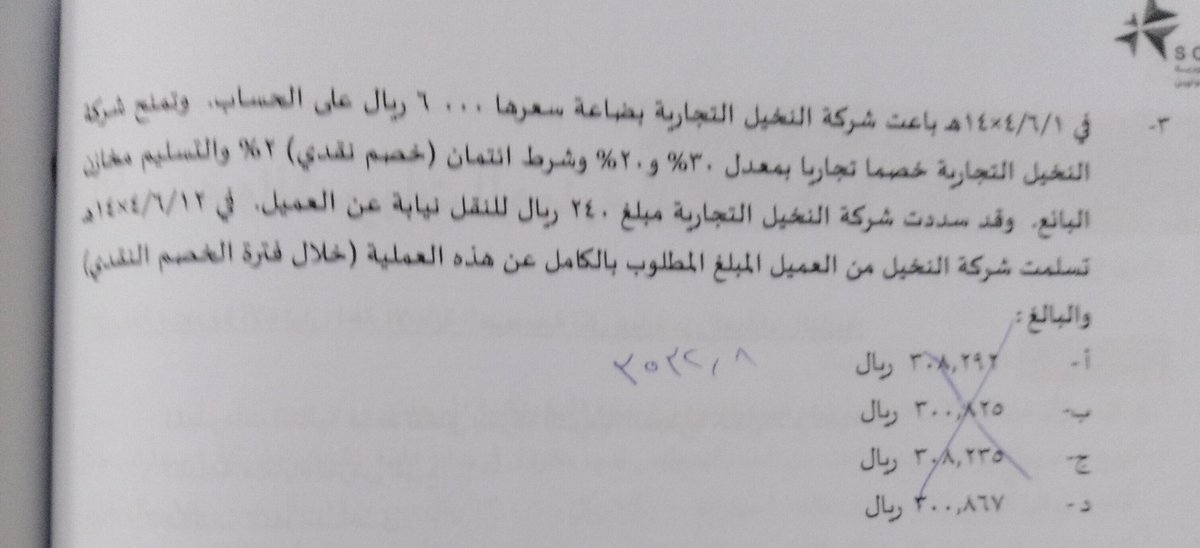 SO
٣- في ١٤×٤/٦/١هـ باعت شركة النخيل التجارية بضاعة سعرها ٦٠٠٠ ريال على الحساب. وتمنح شركة
النخيل التجارية خصما تجاريا بمعدل ٣٠% و٢٠% وشرط ائتمان (خصم نقدي) ٢% والتسليم مخازن
البائع. وقد سددت شركة النخيل التجارية مبلغ ٢٤٠ ريال للنقل نيابة عن العميل. في ١٤×٤/٦/١٢هـ
تسلمت شركة النخيل من العميل المبلغ المطلوب بالكامل عن هذه العملية (خلال فترة الخصم النقدي)
والبالغ:
أ- ٣٠٨,٢٩٢ ريال
٣٥٣٢,٨
ب- ٣٠٠,٨٢٥ ريال
ج- ٣٠٨,٢٣٥ ريال
د- ٣٠٠,٨٦٧ ريال